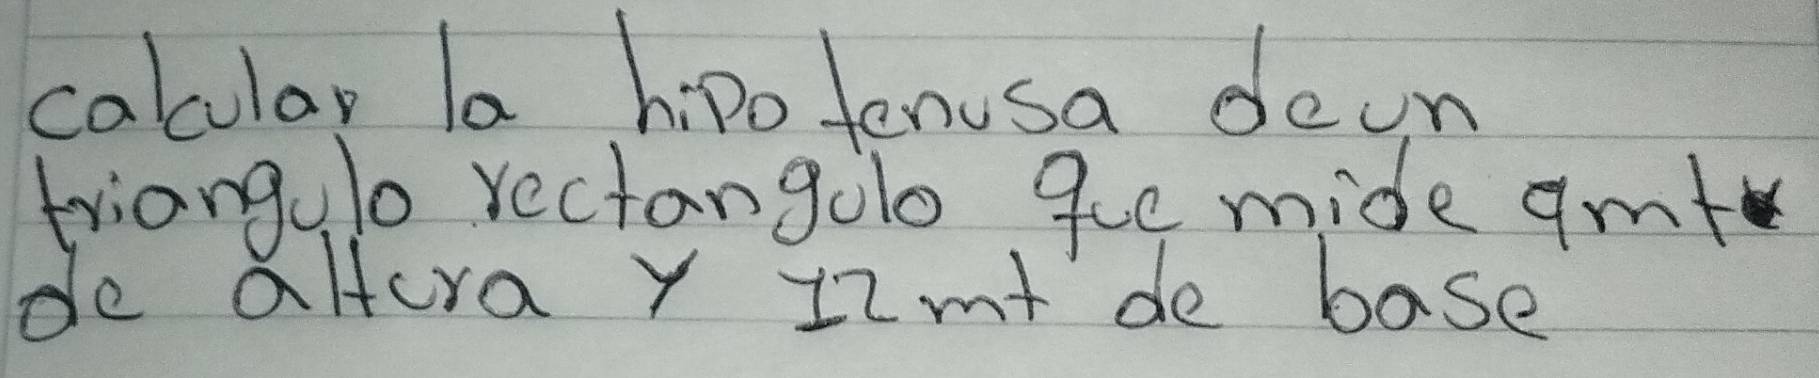 calcular la hipotenusa de un
triangulo rectangulo que mide 9mt
de altura y 12mt de base